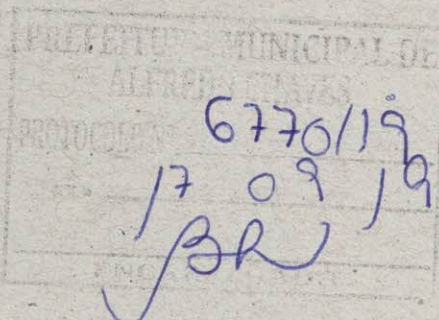 PREFEITURA MUNICIPAL DE
ALFREDO CHAVES
PROTOCOLO Nº 6770/19
17 09 19